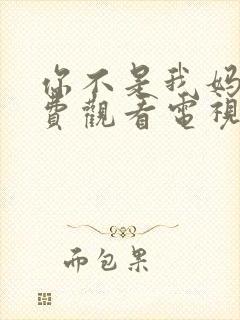 你不是我妈
費觀看電視
而包果